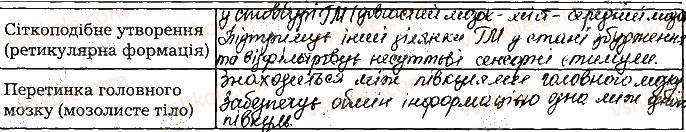 Сіткоподібне утворення
(ретикулярна формація)
у стовбурі ГМ (довгастий мозок - міст - середній мозок
Підтримує інші ділянки ГМ у стані збудження
та відфільтровує несуттєві сенсорні стимули.
Перетинка головного
мозку (мозолисте тіло)
Знаходиться між півкулями головного мозку
Забезпечує обмін інформацією одна між
півкулі